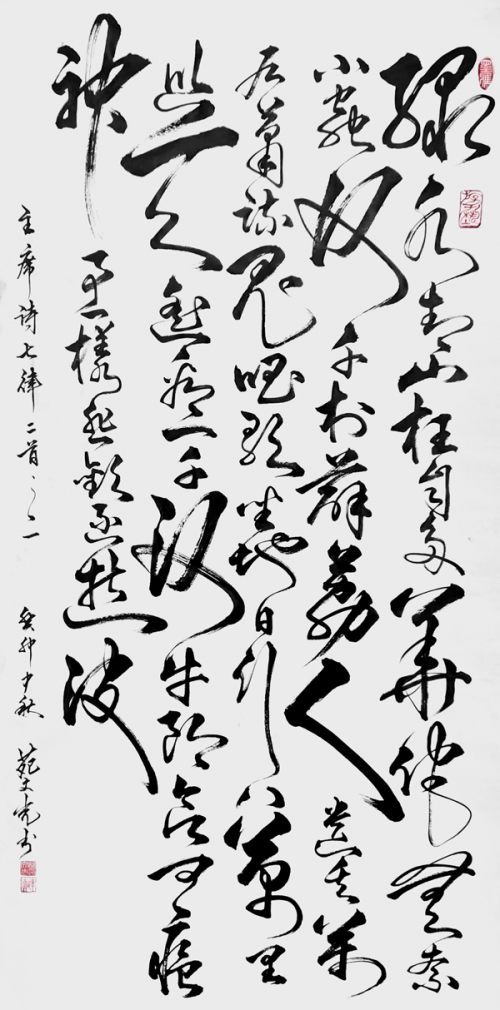 绿水青山枉自多华佗无奈
小虫何千村薜荔人遗矢万
户萧疏鬼唱歌坐地日行八万里
巡天遥看一千河牛郎欲问瘟
神事一样悲欢逐逝波
主席诗七律二首之一 癸卯中秋 范文亮书